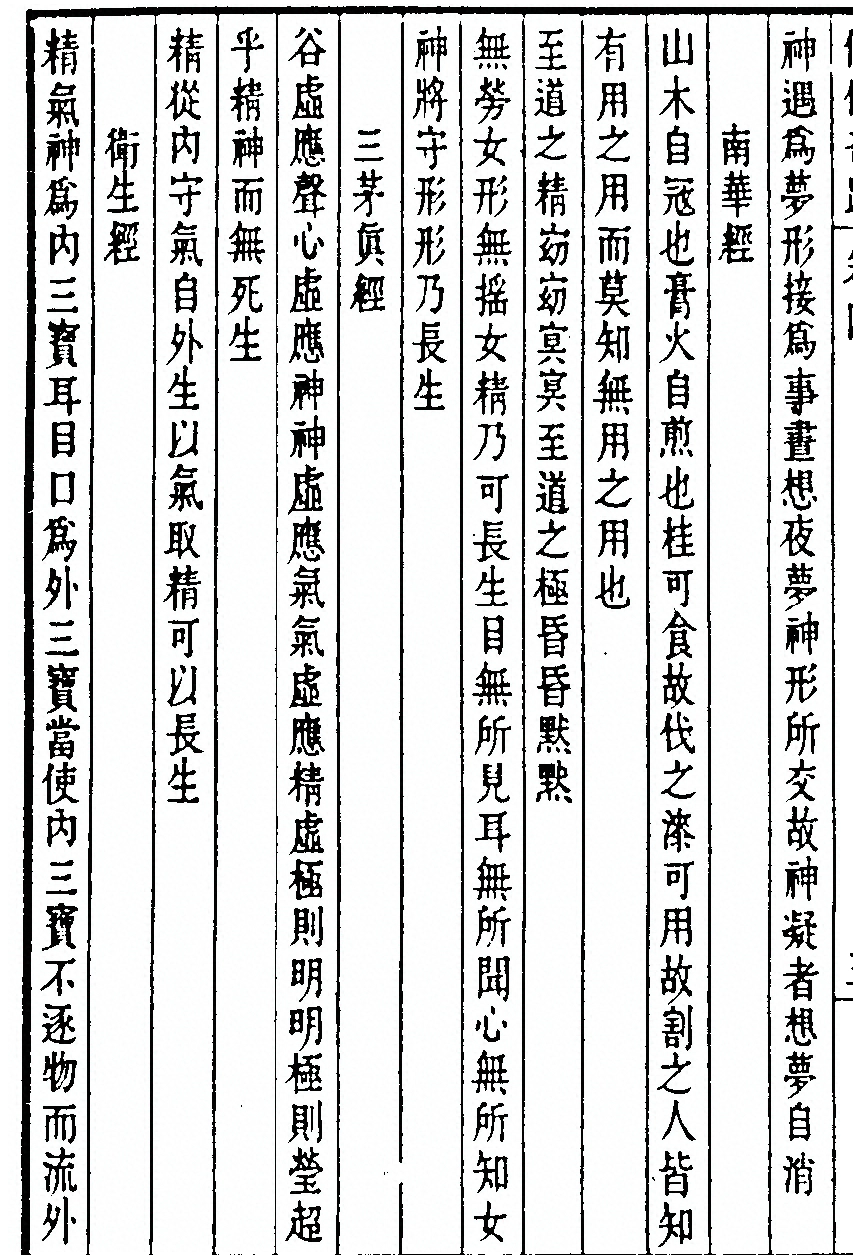 神遇爲夢形接爲事晝想夜夢神形所交故神凝者想夢自消
南華經
山木自寇也膏火自煎也桂可食故伐之漆可用故割之人皆知
有用之用而莫知無用之用也
至道之精窈窈冥冥至道之極昏昏默默
無勞女形無搖女精乃可長生目無所見耳無所聞心無所知女
神將守形形乃長生
三茅眞經
谷虛應聲心虛應神神虛應氣氣虛應精虛極則明明極則瑩超
乎精神而無死生
精從內守氣自外生以氣取精可以長生
衛生經
精氣神爲內三寶耳目口爲外三寶當使內三寶不逐物而流外